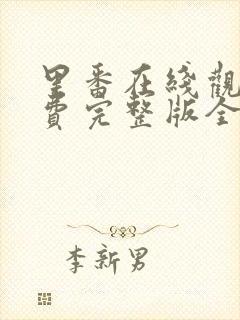 里番在綫觀
費完整版全
李新男